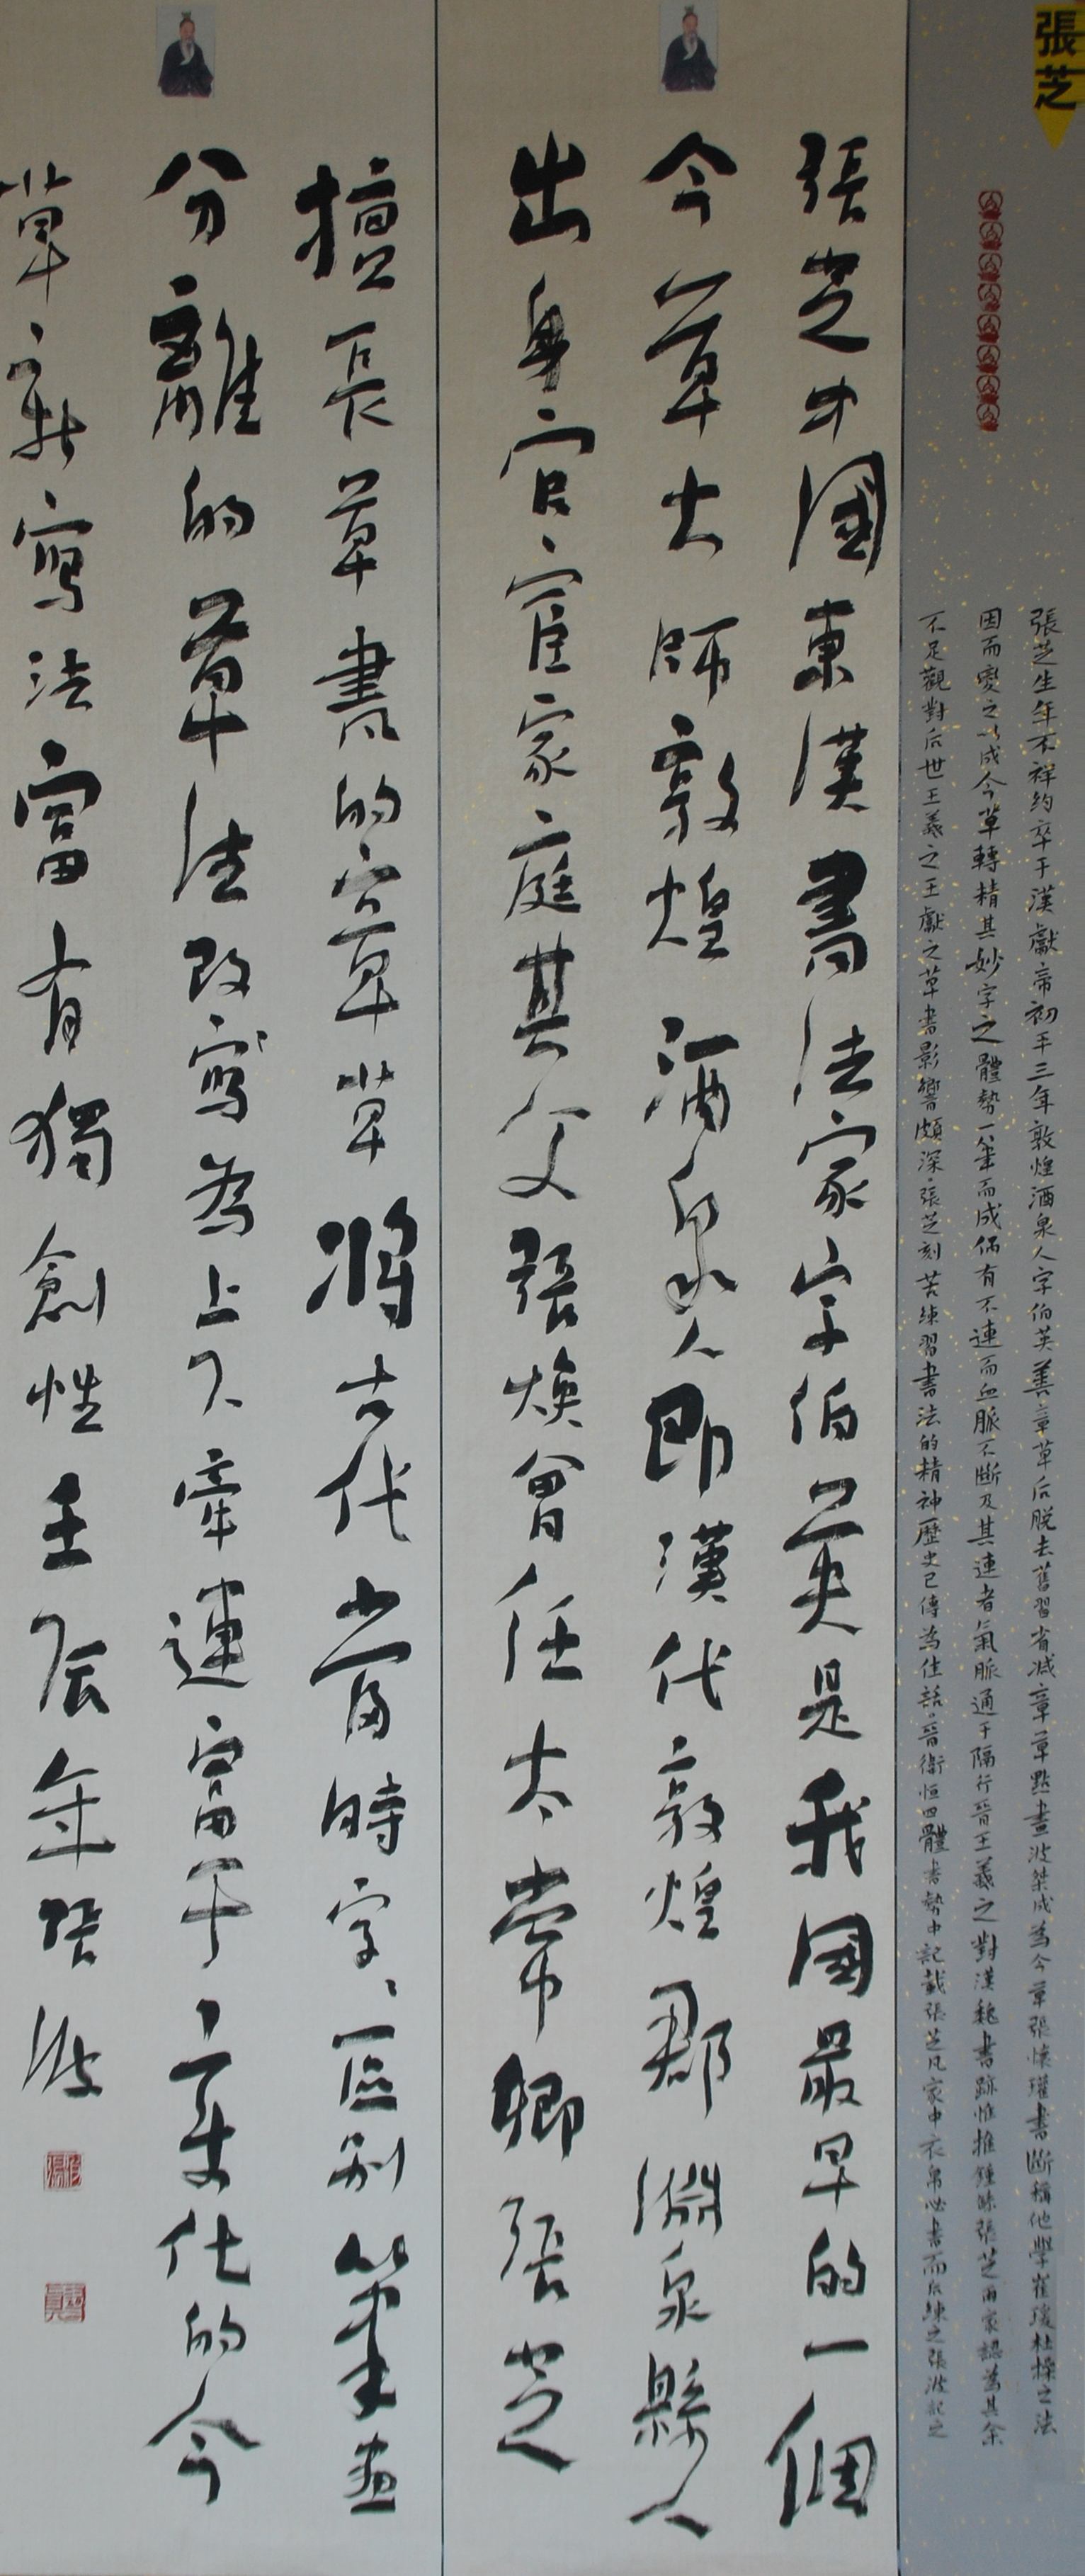 張芝
張芝生年不祥約卒于漢獻帝初平三年敦煌酒泉人字伯英善章草后脱去舊習省减章草點畫波桀成為今草張懷瓘書斷稱他學崔瑗杜操之法
因而變之以成今草轉精其妙字之體勢一筆而成偶有不連而血脈不斷及其連者氣脈通于隔行晉王羲之對漢魏書跡惟推鍾繇張芝兩家認為其余
不足觀對后世王羲之王獻之草書影響頗深張芝刻苦練習書法的精神歷史已傳為佳話晉衛恒四體書勢中記載張芝凡家中衣帛必書而后練之張波記之
張芝中國東漢書法家字伯英是我國最早的一個
今草大師敦煌酒泉人即漢代敦煌郡淵泉縣人
出身官宦家庭其父張焕曾任太常卿張芝
擅長草書的章草草將古代當時字字區别筆畫
分離的草法改寫為上下牽連富于變化的今
草新寫法富有獨創性壬辰年張波